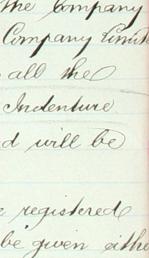 the Company
Company Limit
all the
Indenture
d will be
e registered
be given eithe